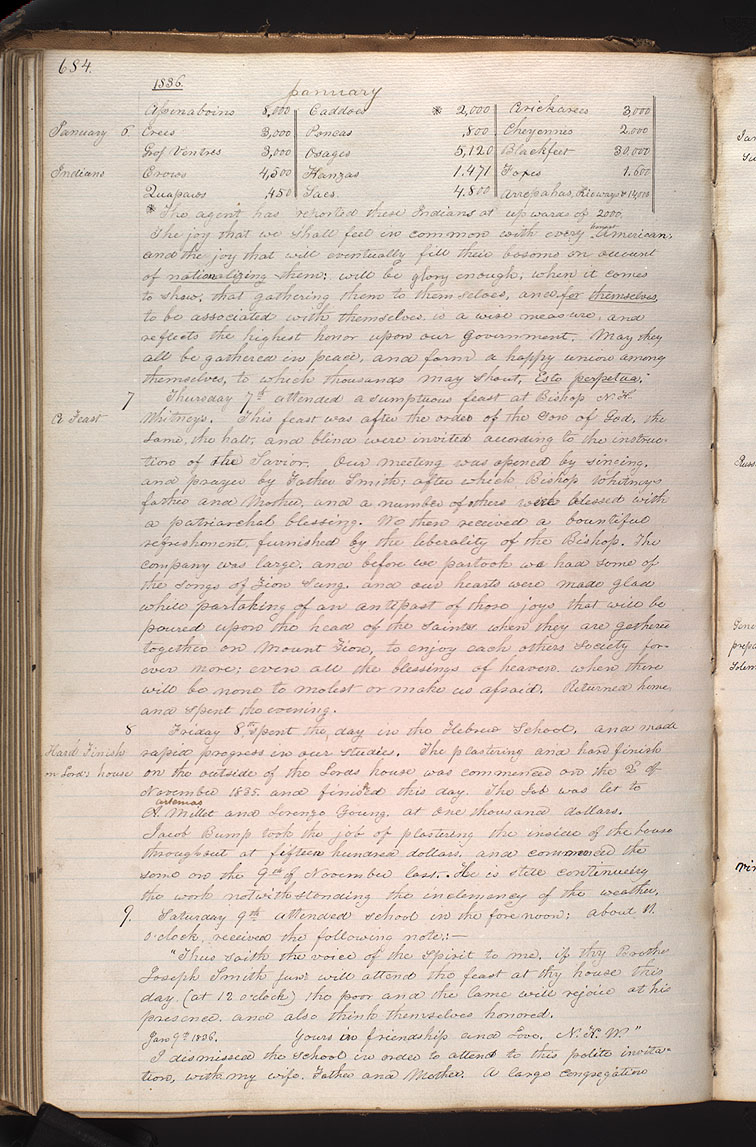 684.
1836.
January
Assinaboins 8,000 Caddoes * 2,000 Arickarees 3,000
January 6 Crees 3,000 Poncas ,800 Cheyennes 2.000
Gros Ventres 3,000 Osages 5,120 Blackfeet 30.000
Indians Crows 4,500 Kanzas 1.471 Foxes 1.600
Quapaws ,450 Sacs. 4.800 Arrepahas, Kioways & 14,000
* The agent has reported these Indians at upwards of 2000.
The joy that we shall feel in common with every honest American,
and the joy that will eventually fill their bosoms on account
of nationalizing them; will be glory enough, when it comes
to shew, that gathering them to themselves, and for themselves,
to be associated with themselves, is a wise measure, and
reflects the highest honor upon our Government. May they
all be gathered in peace, and form a happy union among
themselves, to which thousands may shout, Esto perpetua.
7 Thursday 7th attended a sumptuous feast at Bishop N. K.
A Feast Whitneys. This feast was after the order of the Son of God, the
lame, the halt, and blind were invited according to the instruc-
tion of the Savior. Our meeting was opened by singing,
and prayer by Father Smith; after which Bishop Whitneys
father and Mother, and a number of others were blessed with
a patriarchal blessing. We then received a bountiful
refreshment, furnished by the liberality of the Bishop. The
company was large, and before we partook we had some of
the songs of Zion sung, and our hearts were made glad
while partaking of an antepast of those joys that will be
poured upon the head of the Saints when they are gathered
together on Mount Zion, to enjoy each others society for-
ever more; even all the blessings of heaven when there
will be none to molest or make us afraid. Returned home
and spent the evening.
8 Friday 8th spent the day in the Hebrew School, and made
Hard Finish rapid progress in our studies. The plastering and hard finish
on Lords house on the outside of the Lords house was commenced on the 2d of
November 1835. and finished this day. The Job was let to
Artemas
A. Millet and Lorenzo Young, at one thousand dollars.
Jacob Bump took the job of plastering the inside of the house
throughout at fifteen hundred dollars, and commenced the
same on the 9th of November last. He is still continueing
the work notwithstanding the inclemency of the weather.
9. Saturday 9th attended school in the fore noon; about 11.
o'clock, received the following note:—
"Thus saith the voice of the Spirit to me, if thy Brother
Joseph Smith Junr will attend the feast at thy house this
day, (at 12 o'clock) the poor and the lame will rejoice at his
presence, and also think themselves honored.
Jan 9th 1836. Yours in friendship and Love, N. K. W."
I dismissed the School in order to attend to this polite invita-
tion, with my wife, Father and Mother. A large congregation